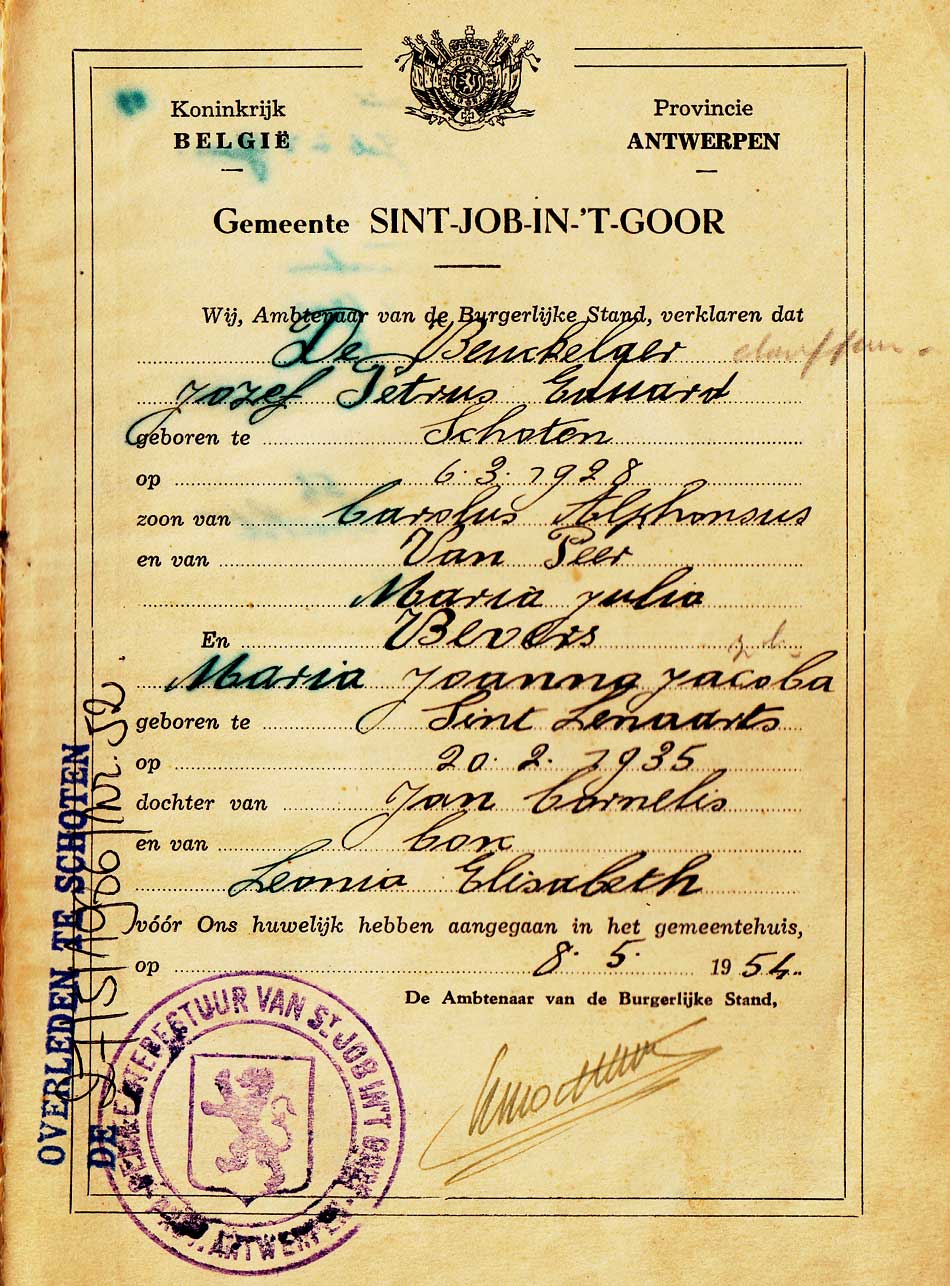 Koninkrijk
BELGIË
Provincie
ANTWERPEN
Gemeente SINT-JOB-IN-'T-GOOR
Wij, Ambtenaar van de Burgerlijke Stand, verklaren dat
De Beuckelaer
Jozef Petrus Eduard
geboren te Schoten
op 6.3.1928
zoon van Carolus Alphonsus
en van Van Peer
Maria Julia
En Bevers
Maria Joanna Jacoba
geboren te Sint Lenaarts
op 20.2.1935
dochter van Jan Cornelis
en van Cox
Leonia Elisabeth
vóór Ons huwelijk hebben aangegaan in het gemeentehuis,
op 8.5. 1954.
De Ambtenaar van de Burgerlijke Stand,
OVERLEDEN TE SCHOTEN
DE /1966/Nr. 52.
GEMEENTEBESTUUR VAN ST JOB IN'T GOOR
PROV. ANTWERPEN